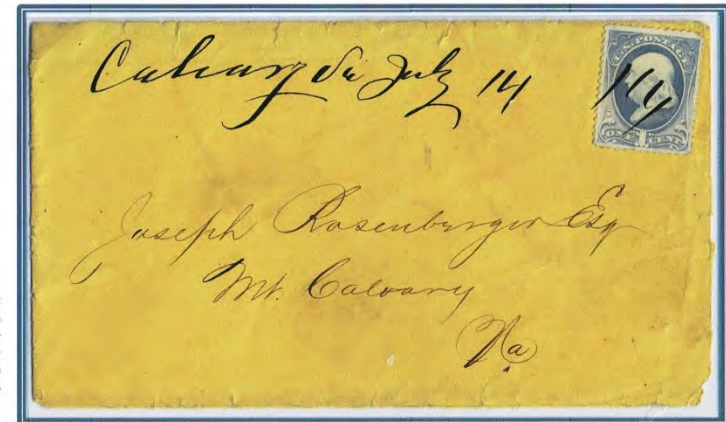 Calvary Va July 14
U.S. POSTAGE
14
ONE 1 CENT
Joseph Rosenberger Esq
Mt. Calvary
Va